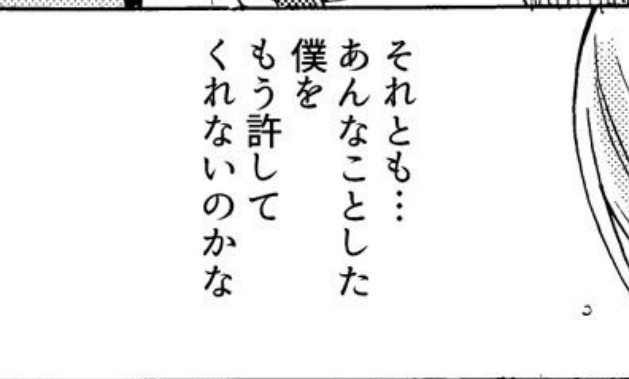 それとも…
あんなことした
僕を
もう許して
くれないのかな